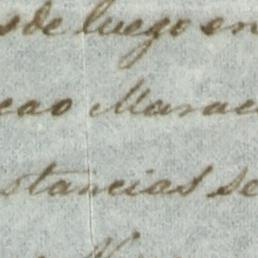 sde luego en
cao Marac
stancias se